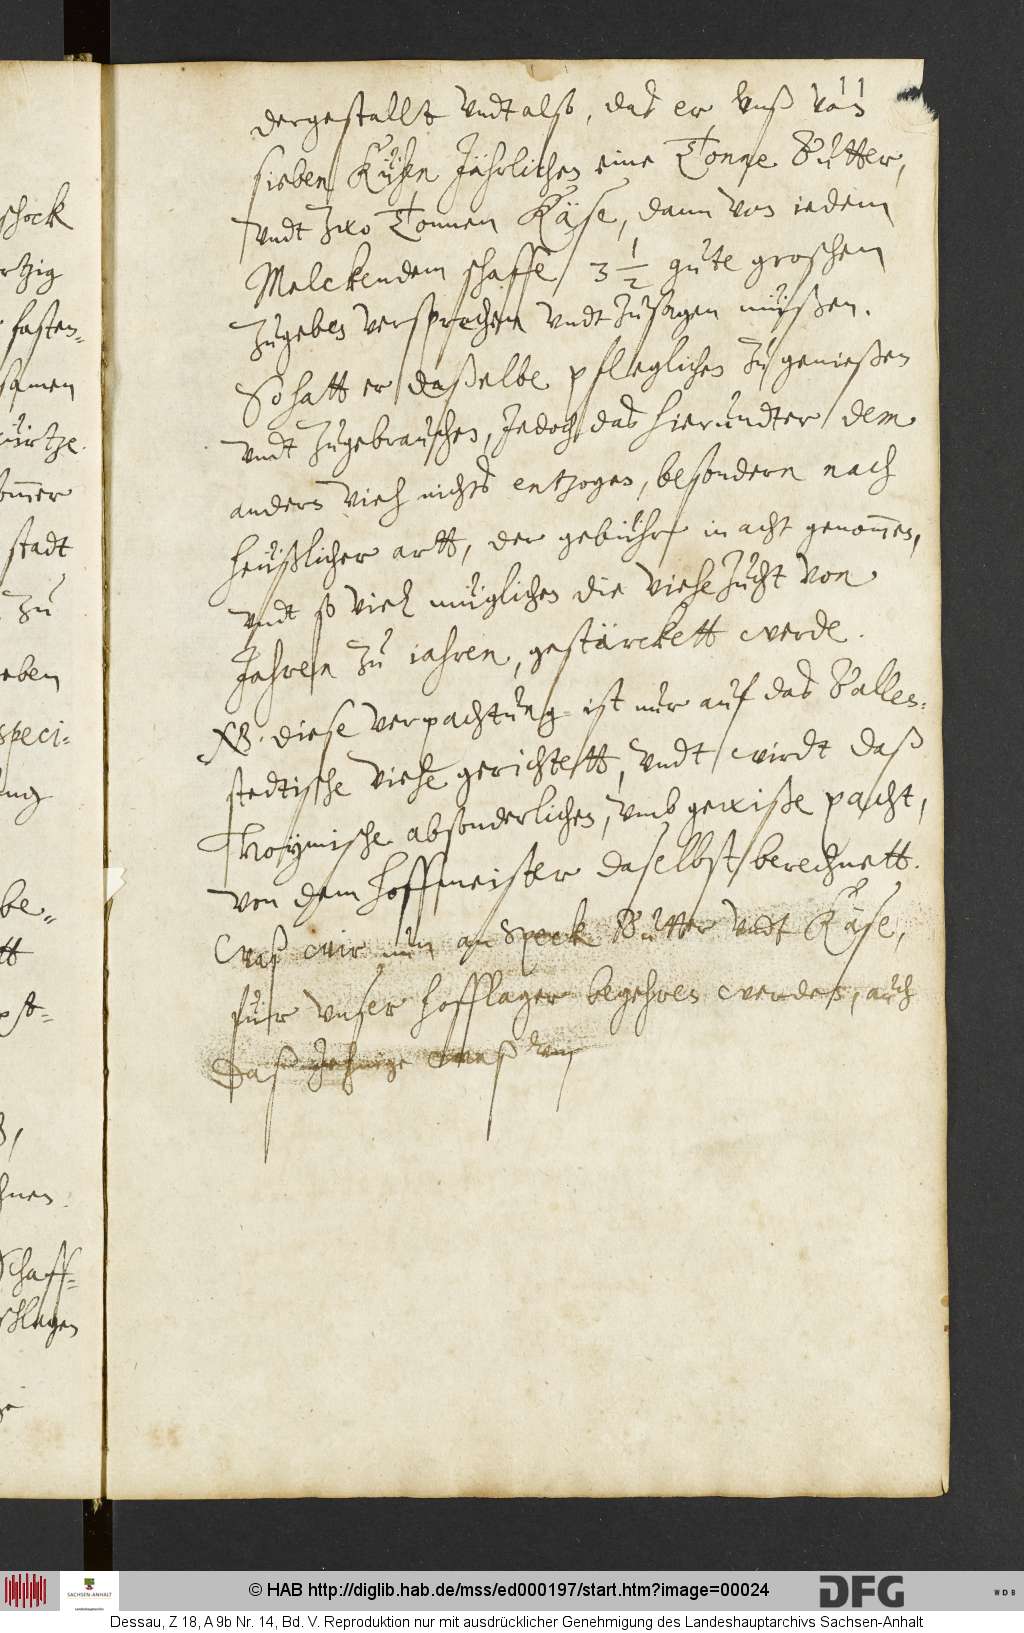 11
dergestallt vndt also, das er vnß von
sieben Kühen Jährlichen eine Tonne Butter,
vndt Zwo Tonnen Käse, dann von iedem
Melckendem schaffe 3 1/2 gute groschen
Zugeben versprochen vndt Zusagen müßen.
So hatt er daßelbe pfleglichen Zu genießen
vndt Zugebrauchen, Jedoch das hierundter dem
andern vieh nichts entzogen, besondern nach
heüßlicher artt, der gebühr in acht genom̄en,
vndt so viel müglichen die viehe Zucht von
Jahren Zu iahren, gestärckett werde.
NB. diese verpachtung ist nur auf das Ballen-
stedtische viehe gerichtett, vndt wirdt daß
Hoÿmische absonderlichen, vmb gewiße pacht,
von dem hoffmeister daselbst berechnett.
Waß wir nun an Speck Butter vndt Käse,
für vnser hofflager begehren werden, auch
daß Jehnige waß von
schock
rtzig
fasten-
samen
würtze.
om̄er
stadt
Zu
eben
speci-
ung
be-
tt
hnen.
Schaff-
schlagen
© HAB http://diglib.hab.de/mss/ed000197/start.htm?image=00024
SACHSEN-ANHALT
DFG
WDB
Dessau, Z 18, A 9b Nr. 14, Bd. V. Reproduktion nur mit ausdrücklicher Genehmigung des Landeshauptarchivs Sachsen-Anhalt